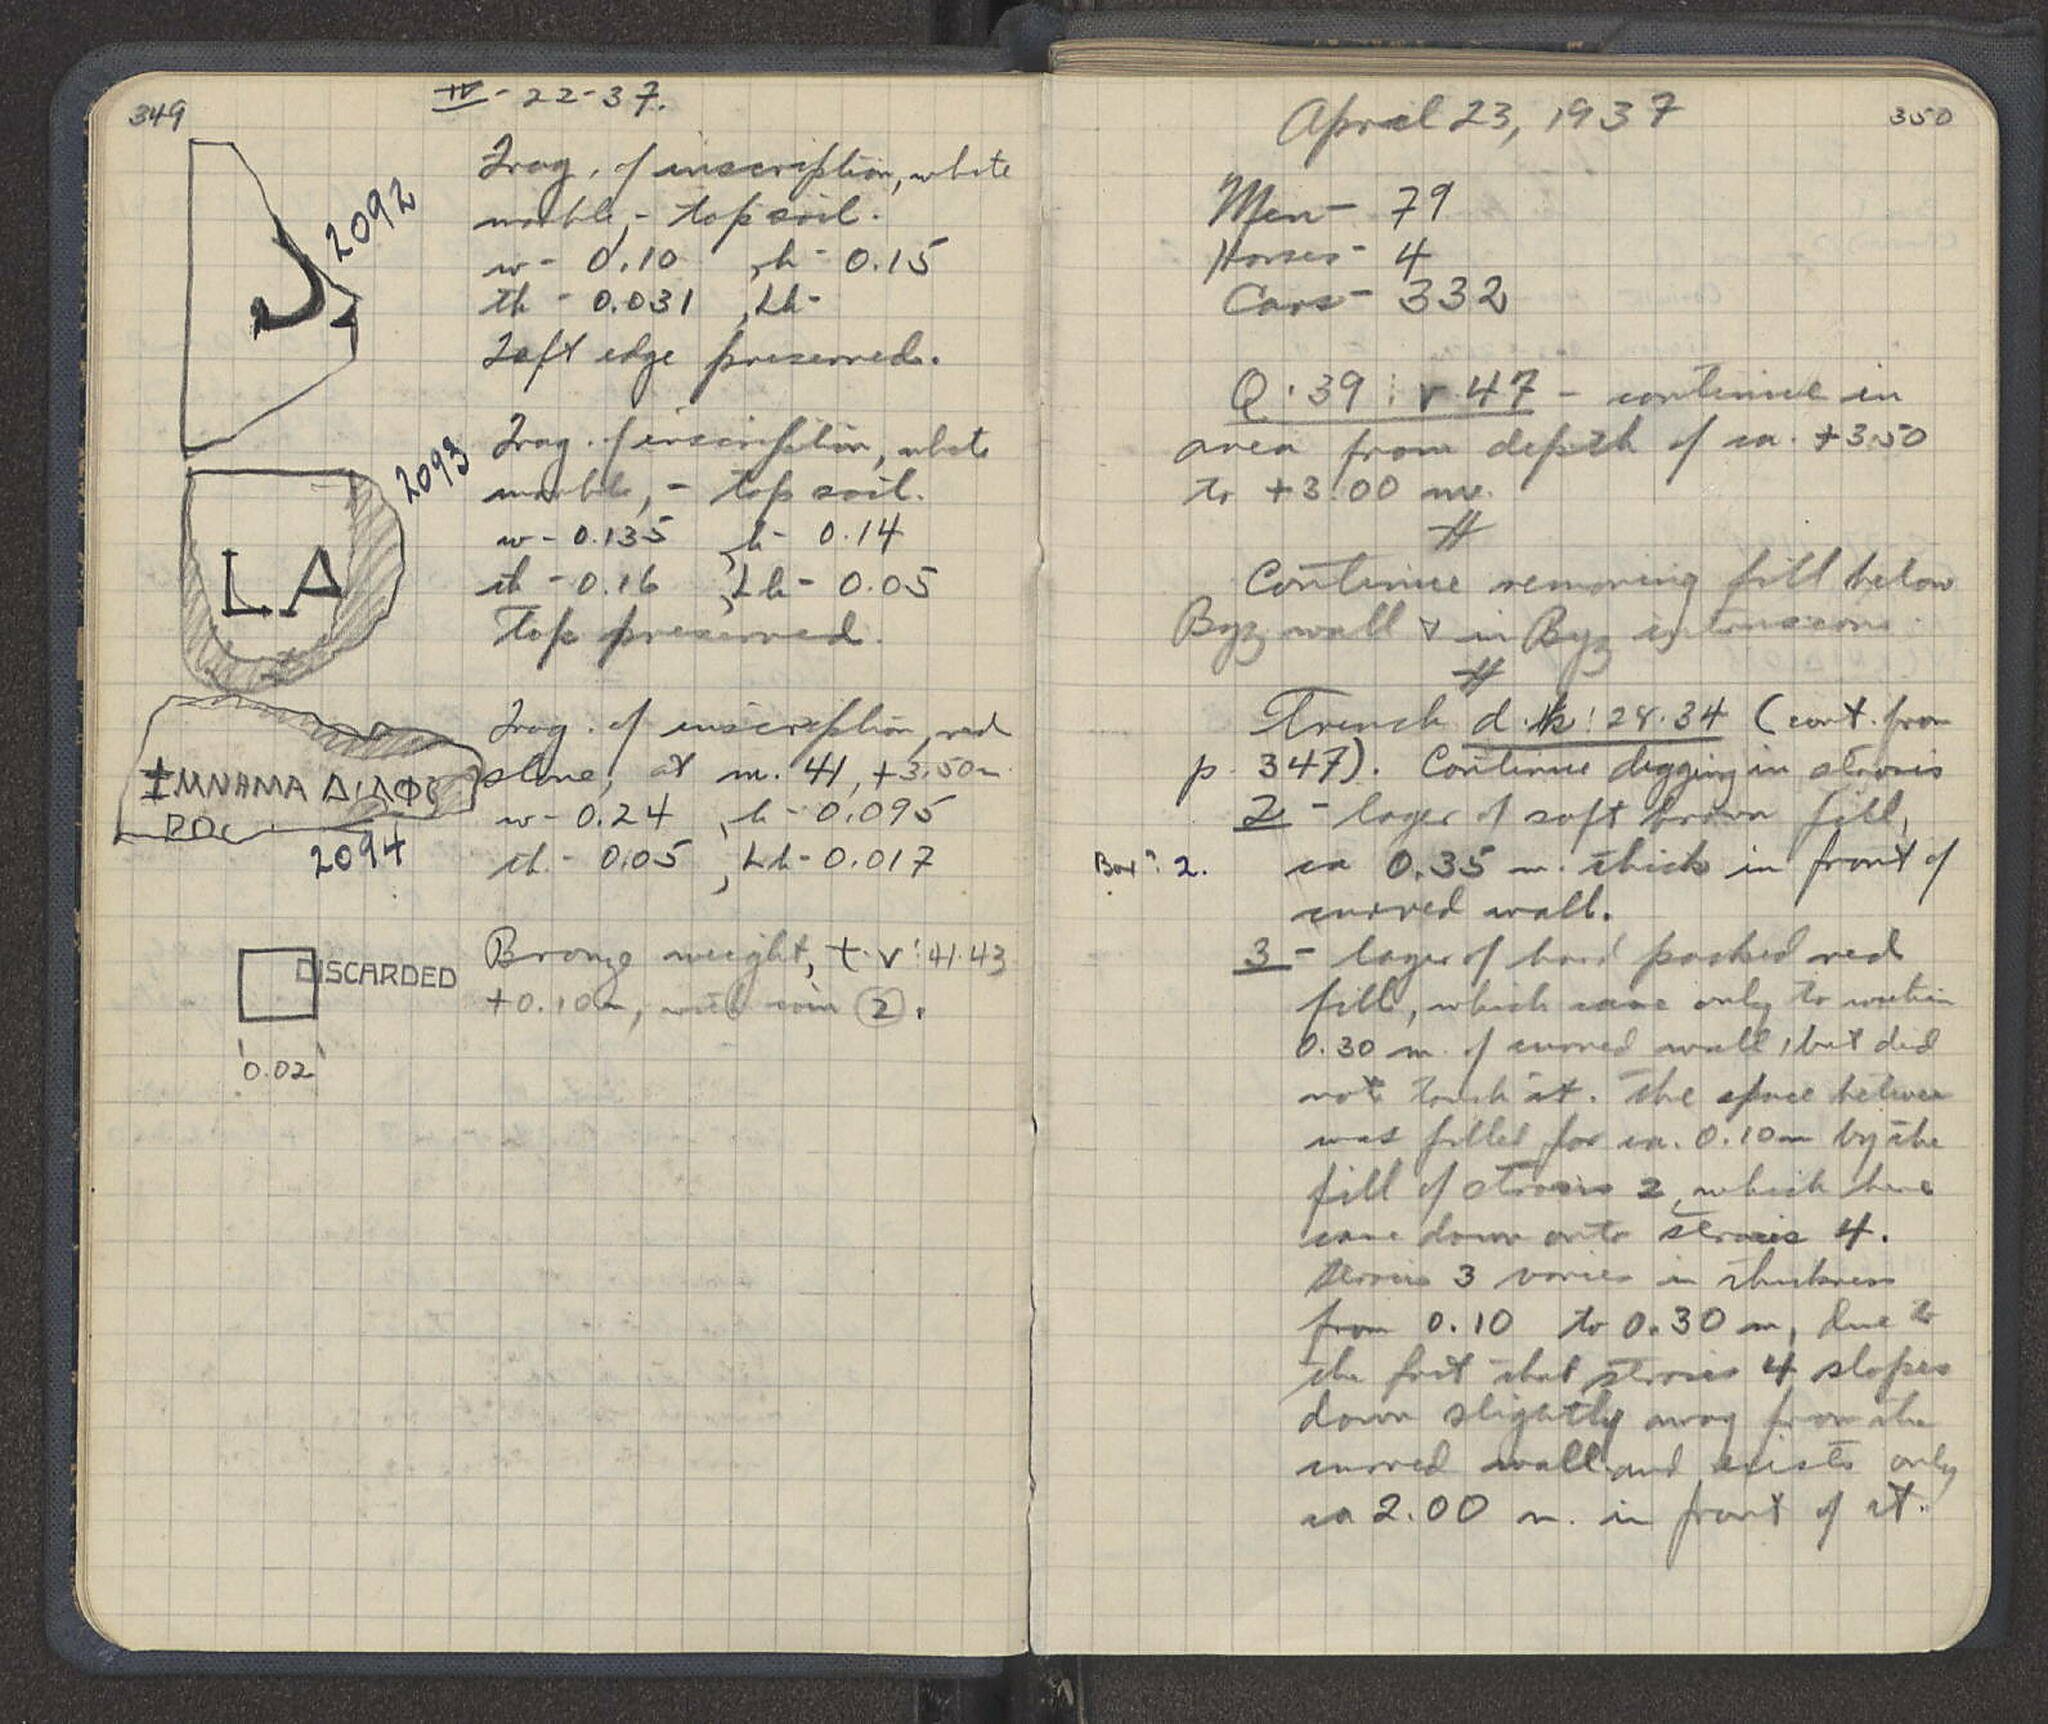 349
IV-22-37.
2092
Frag. of inscription, white
marble, - top soil.
w- 0.10 , h- 0.15
th - 0.031 , Lh-
Left edge preserved.
2093
LA
Frag. of inscription, white
marble, - top soil.
w- 0.135 , h- 0.14
th - 0.16 , Lh- 0.05
Top preserved.
ΜΝΗΜΑ ΔΙΑΦ
2094
Frag. of inscription, red
stone, at m. 41, +3.50m
w- 0.24 , h- 0.095
th- 0.05 , Lh- 0.017
DISCARDED
0.02
Bronze weight, t.v:41.43
+0.10m, with coin 2.
April 23, 1937
350
Men- 79
Horses- 4
Cars- 332
Q.39:v.47 - continue in
area from depth of ca. +3.50
to +3.00 m.
#
Continue removing fill below
Byz wall & in Byz intrusions.
#
Trench d.k:28.34 (cont. from
p. 347). Continue digging in strosis
2 - layer of soft brown fill,
Box: 2.
ca 0.35 m. thick in front of
curved wall.
3 - layer of hard packed red
fill, which came only to within
0.30 m. of curved wall, but did
not touch it. The space between
was filled for ca. 0.10m by the
fill of strosis 2, which here
came down onto strosis 4.
Strosis 3 varies in thickness
from 0.10 to 0.30 m, due to
the fact that strosis 4 slopes
down slightly away from the
curved wall and exists only
ca 2.00 m. in front of it.